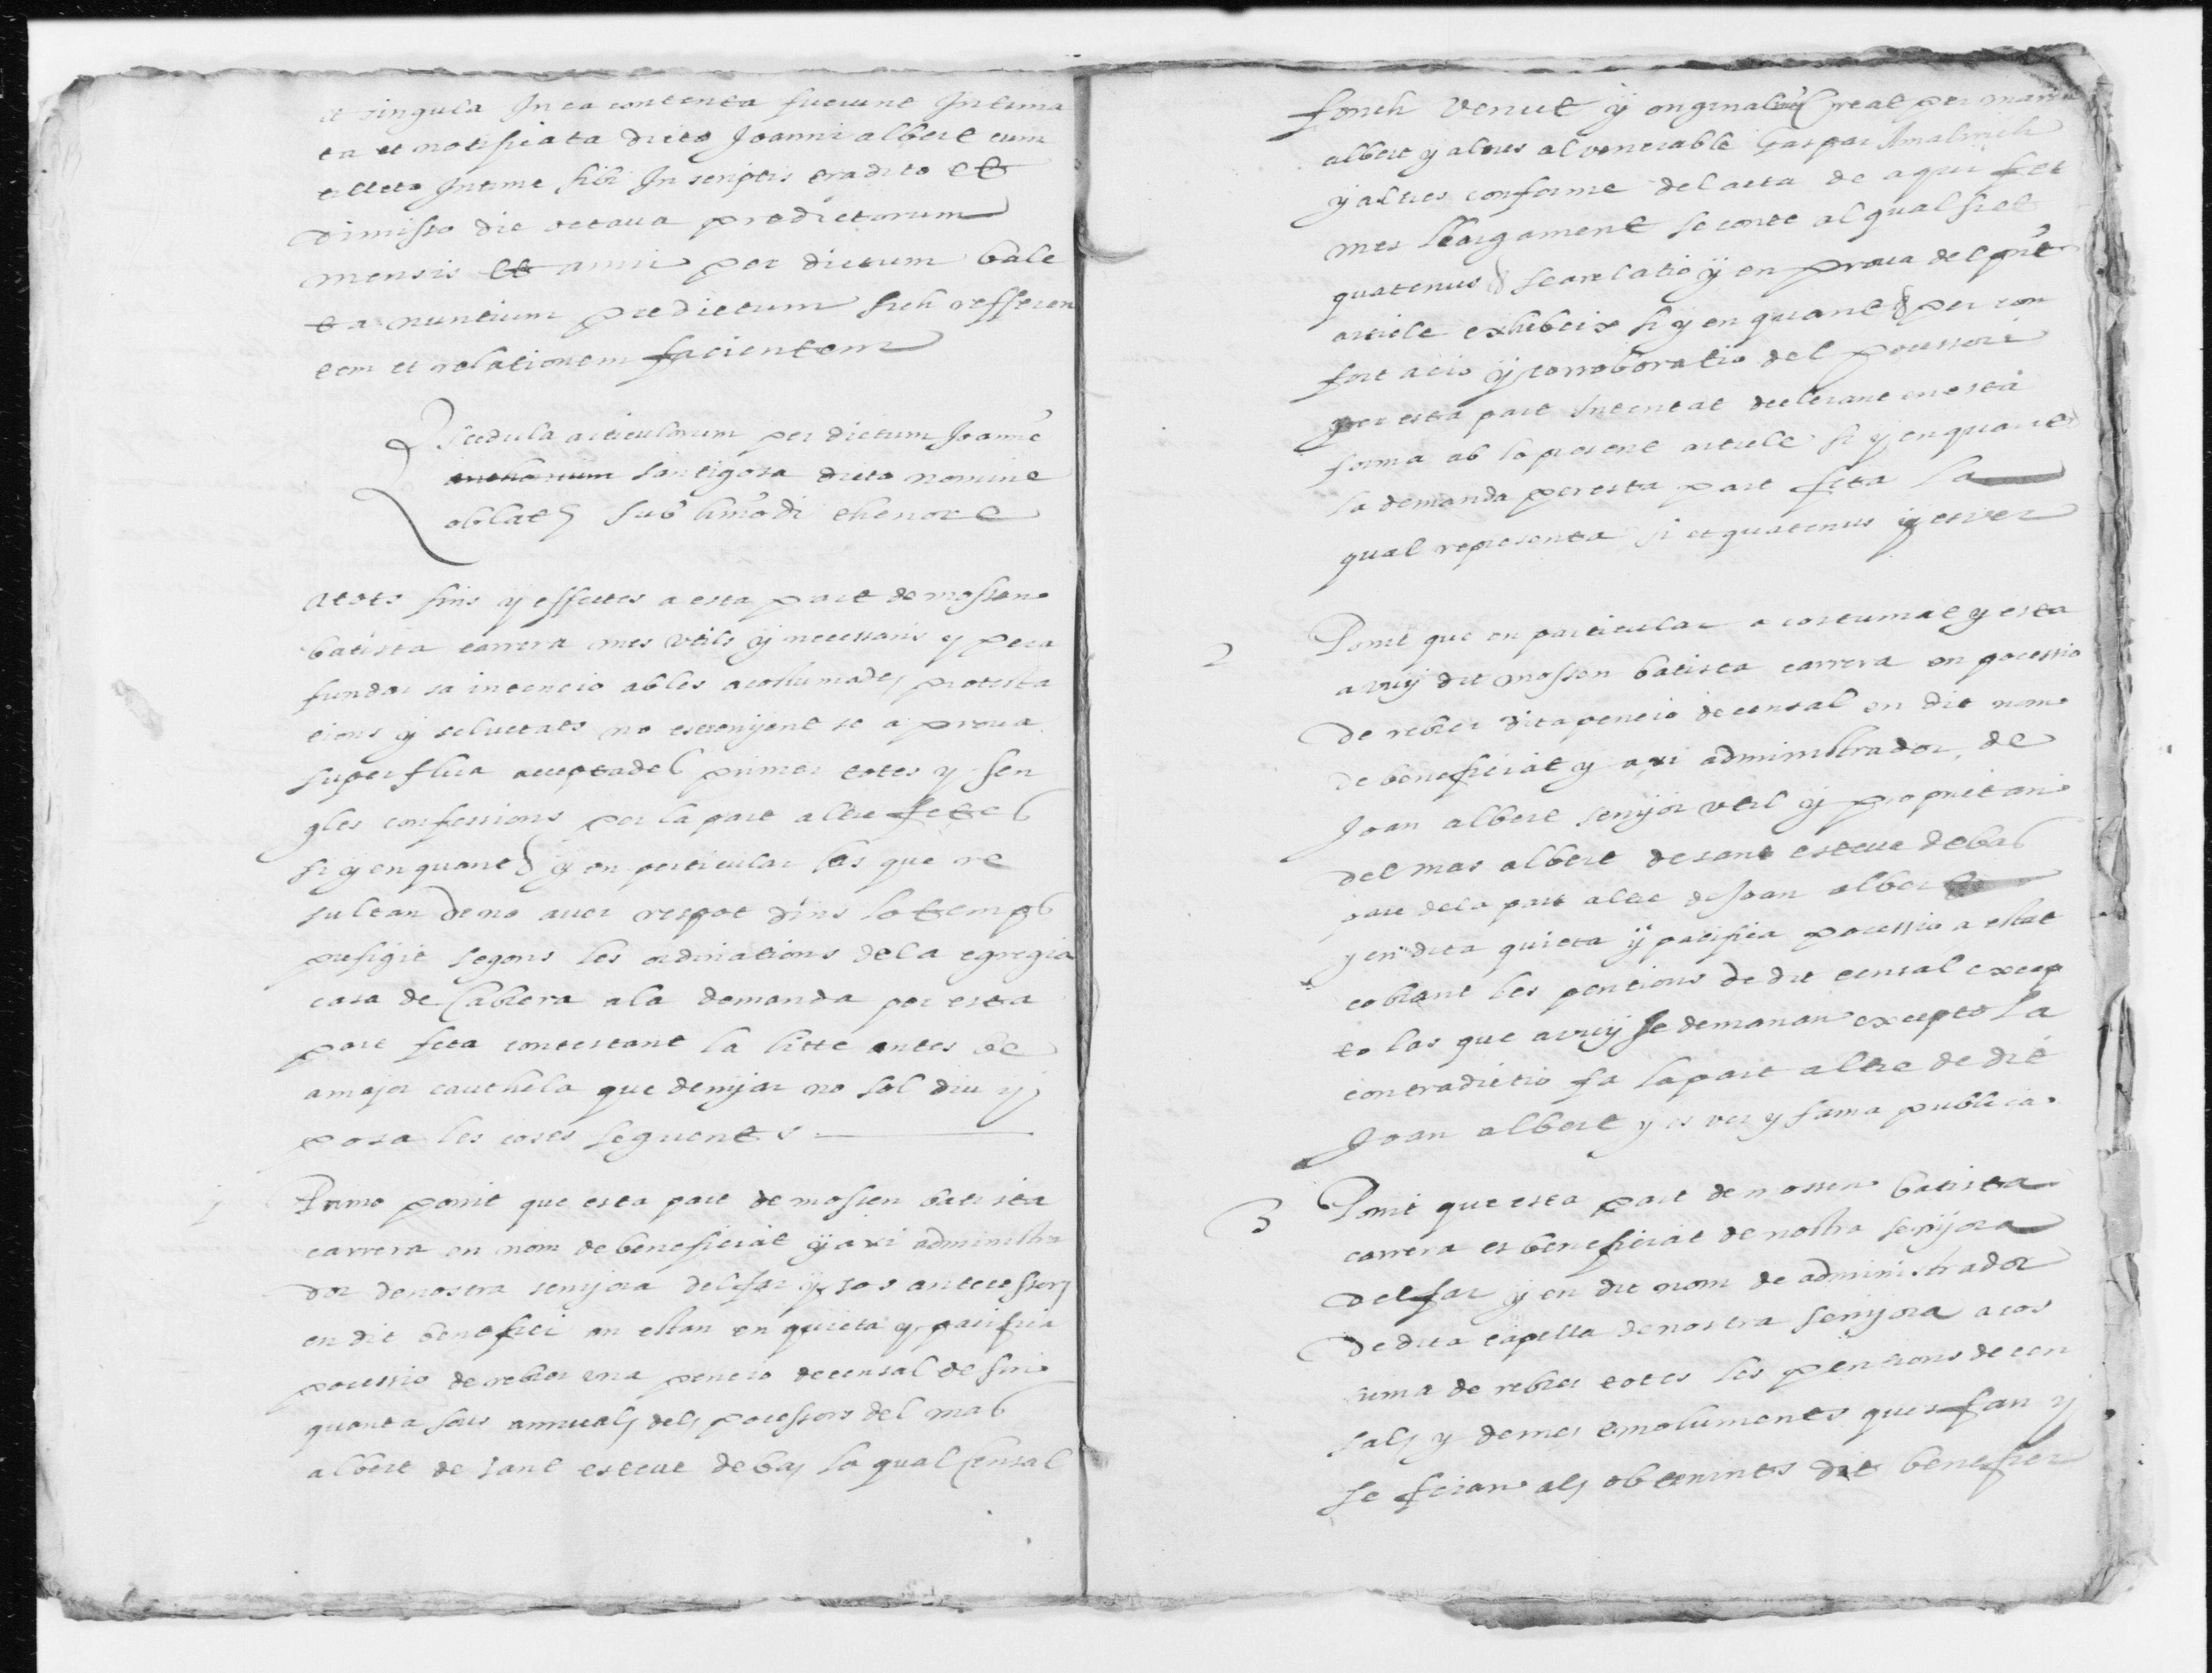 et singula In ea contenta fuerunt Intima
ta et notificata dicto Joanni albert cum
Intime sibi In scriptis tradito et
dimisso die octava predictorum
mensis et anni per dictum bale
ta nuntium predictum sich refferen
tem et relationem facientem
Scedula articulorum per dictum Joanne
santigosa dicto nomine
oblate sub hmodi thenore
A tots fins y effectes a esta part de mossen
batista carrera mes utils y necessaris y pera
fundar sa intencio ab les acostumades protesta
tions y selvetats no estrenyent se a prova
superflua acceptades primer totes y sen
gles confessions per la part altre fetes
si y en quant y en perticular las que re
sultan de no aver respot dins lo temps
prefigit segons les ordinations de la egregia
casa de Cabrera a la demanda per esta
part feta contestant la litte antes be
a major cauthela que denyar no sol diu y
posa les coses seguents
1 Primo ponit que esta part de mossen batista
carrera en nom de beneficiat y axi administra
dor de nostra senyora del far y sos antecessors
en dit benefici an estan en quieta y pacifica
pocessio de rebrer una pencio de censal de sin
quanta sous annuals dels pocessors del mas
albert de sant esteve debas lo qual censal
fonch venut y originalmt creat per
albert y altres al venerable Gaspar Amalrich
y altres conforme del acta de aqui fet
mes llargament se conte al qual si et
quatenus se a relatio y en prova del pnt
article exhibeix si y en quant per con
fortacio y corroboratio del pocessori
per esta part intentat declerant en esta
forma ab lo present article si y en quant
la demanda per esta part feta la
qual representa si et quatenus y es ver
2 Ponit que en particular a costumat y esta
avuy dit mossen batista carrera en pocessio
de rebrer dita pencio de censal en dit nom
de beneficiat y axi administrador, de
Joan albert senyor util y proprietari
del mas albert de sant esteve debas
pare de la part altre de Joan albert
y en dita quieta y pacifica pocessio a estat
cobrant les pentions de dit censal excep
to las que avuy se demanan excepto la
contradictio fa la part altre de dit
Joan albert y es ver y fama publica.
3 Ponit que esta part de mossen batista
carrera es beneficiat de nostra senyora
del far y en dit nom de administrador
de dita capella de nostra senyora acos
tuma de rebrer totes les pentions de cen
sals y demes emoluments ques fan y
se feian als obtenints dit benefici